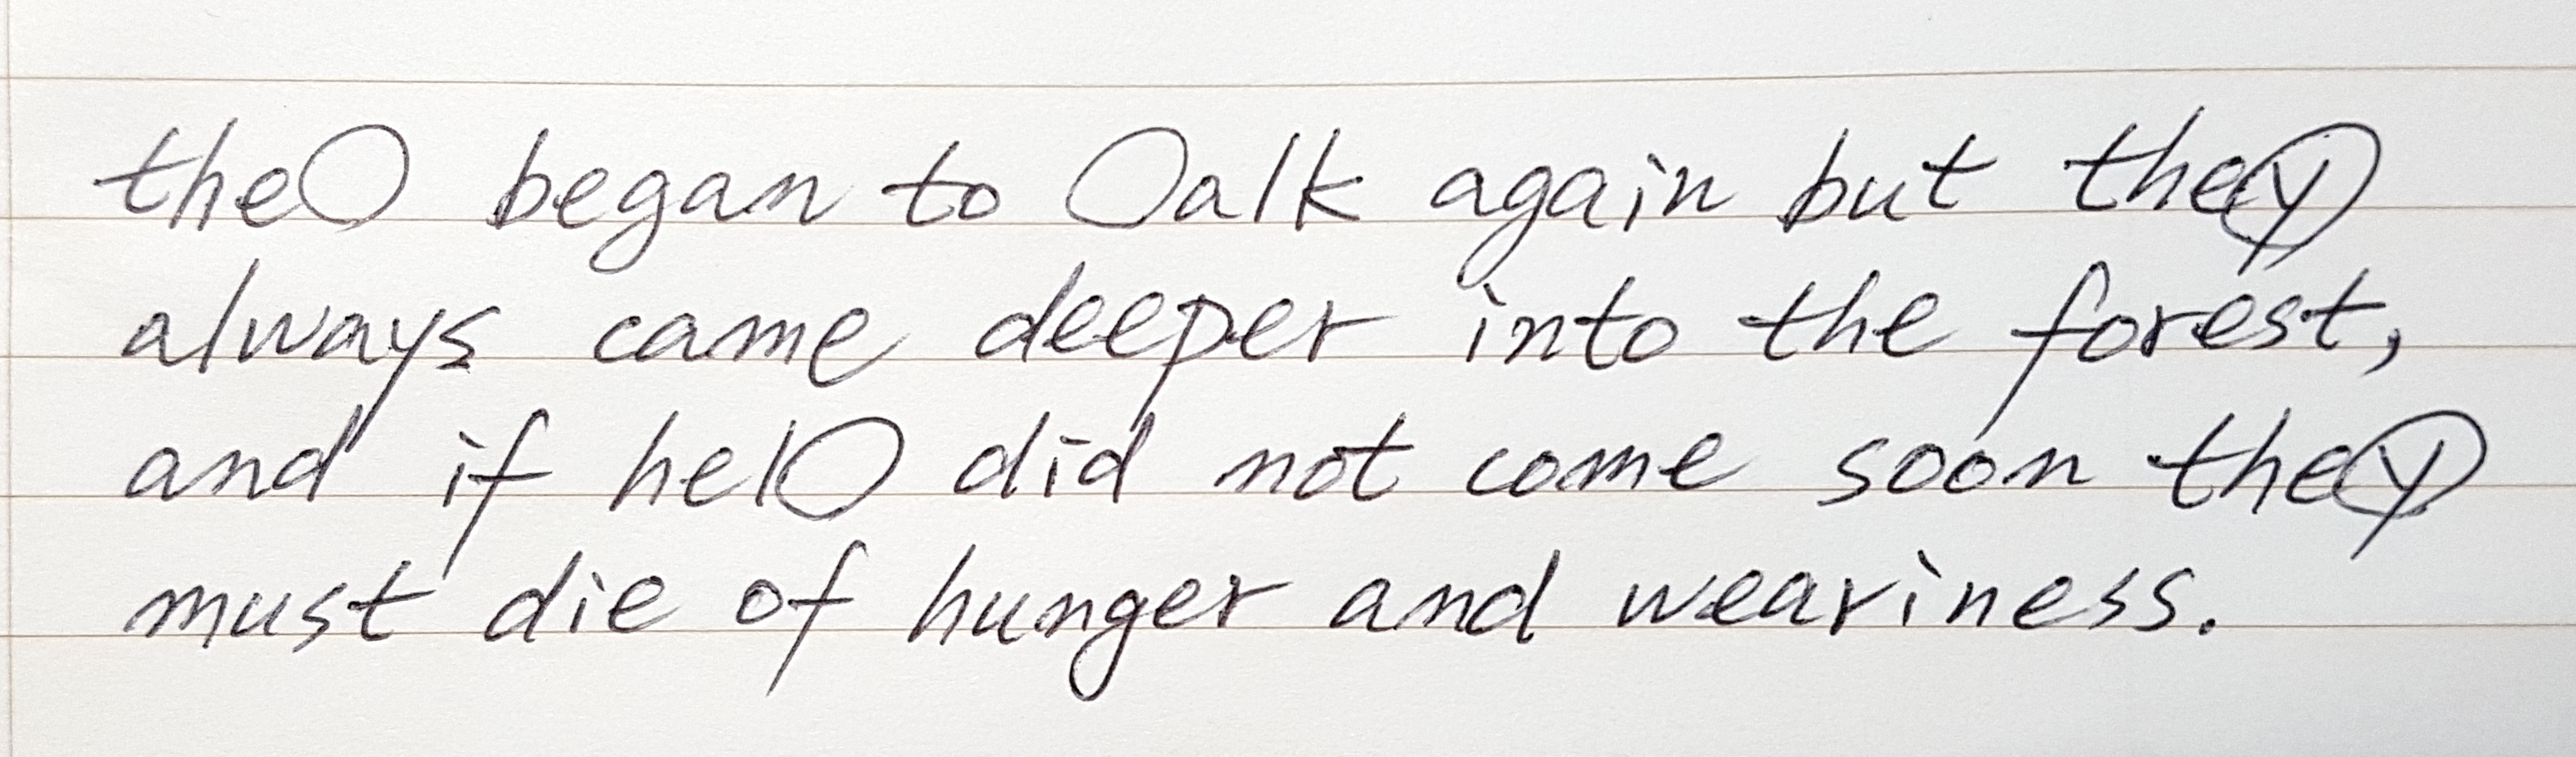 the○ began to ○alk again but theⓨ
always came deeper into the forest,
and if hel○ did not come soon theⓨ
must die of hunger and weariness.